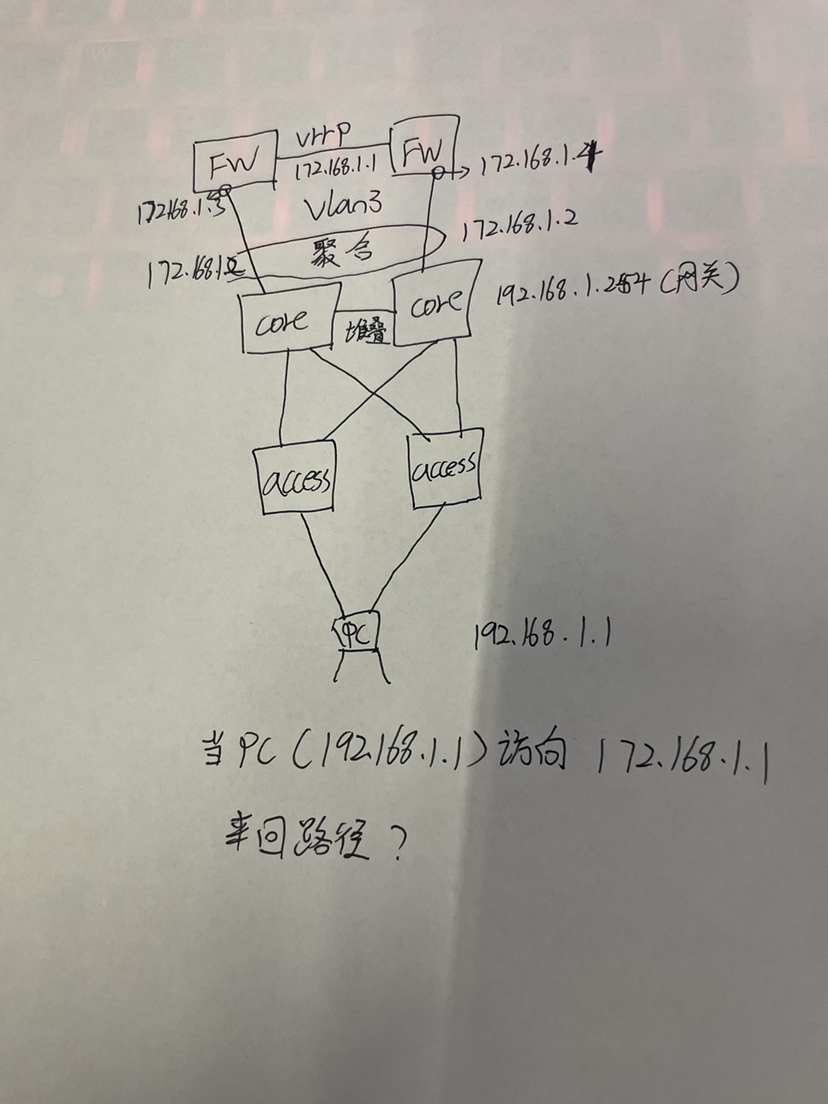 vrrp
FW
172.168.1.1
FW
172.168.1.4
172.168.1.3
vlan3
172.168.1.2
聚合
core
堆叠
core
192.168.1.254(网关)
access
access
PC
192.168.1.1
当PC(192.168.1.1)访问172.168.1.1
来回路径?